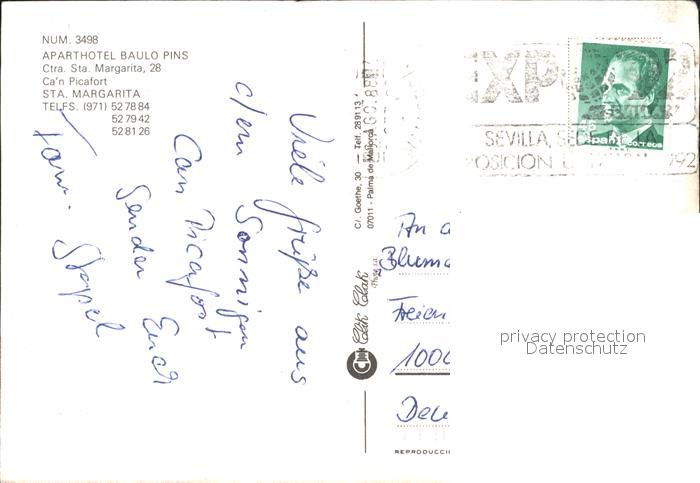 NUM. 3498
APARTHOTEL BAULO PINS
Ctra. Sta. Margarita, 28
Ca'n Picafort
STA. MARGARITA
TELFS. (971) 52 78 84
52 79 42
52 81 26
Viele Grüße aus
dem Sonnigen
Can Picafort
Senden Euch
Fam. Stappel
C/. Goethe, 30 — Telf. 289113
07011 - Palma de Mallorca
Clik Clak
EXPO
SEVILLA
España correos
An
Blum
1000
REPRODUCCI
privacy protection
Datenschutz